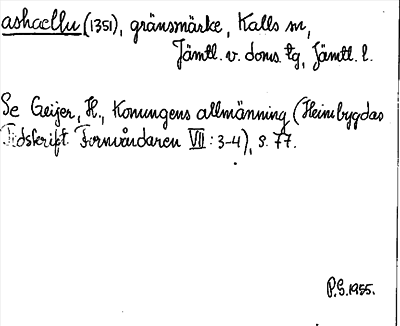 ashaellu (1351), gränsmärke, Kalls sn,
Jämtl. v. doms. tg, Jämtl. l.
Se Geijer, H., Konungens allmänning (Heimbygdas
Tidskrift Fornvårdaren VII: 3-4), s. 77.
P.S. 1955.